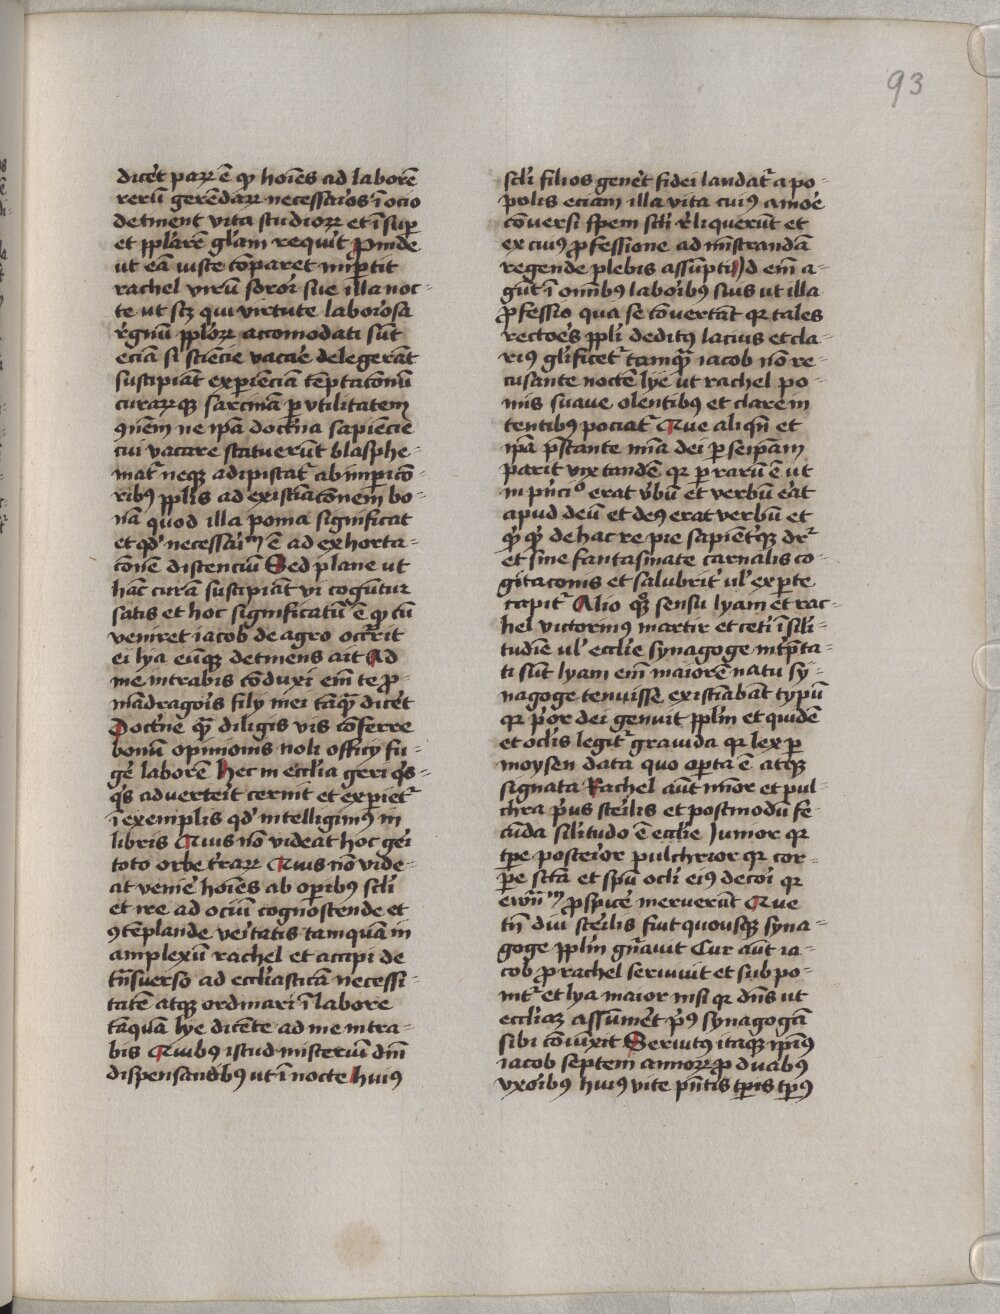 93
dicēt parꝝ ē ꝙ hoīes ad laborē
rerū gerēdaꝝ necessarios ī ocio
detinent vita studioꝝ et ī suꝑ
et pplārē gl̄am requirit Proinde
ut eā iuste cōparet imꝑtit
rachel virū sorori sue illa noc-
te ut scꝫ qui virtute laboriosa
regnū pploꝝ accomodati sūt
eciā si sciēcie vacare delegerāt
suscipiāt exꝑiēciā tēptacōnū
curarꝝqꝫ sarcinā ꝑ vtilitatem
ꝯmūem ne ip̄a doctrina sapiēcie
cui vacare statuerūt blasphe-
mat̄ neqꝫ adipiscat̄ ab imꝑicō-
ribꝰ pplis ad existīacōnem bo-
nā quod illa poma significat
et qd' necessariū ē ad exhorta-
cōnē discenciū Sed plane ut
hāc curā suscipiāt vi cogūtur
satis et hoc significatū ē ꝙ cū
veniret iacob de agro occurrit
ei lya eūqꝫ detinens ait Ad
me intrabis cōduxi em̄ te ꝓ
mādragoris filij mei tāqᷓ dicēt
Doctrine qᷓ diligis vis cōferre
bonū opinionis noli officij fu-
gere laborē Hec in ecclīa geri qⁱs-
qⁱs adverterit cernit et exꝑiet̄
ī exemplis qd' intelligimꝰ in
libris Quis nō videat hoc geri
toto orbe terraꝝ Quis nō vide-
at venire hoīes ab oꝑibꝰ scli
et ire ad ociū cognoscende et
ꝯtēplande veritatis tamquā in
amplexū rachel et accipi de
trāsverso ad eccliasticā necessi-
tatē atqꝫ ordinari ī labore
tāquā lye dicēte ad me intra-
bis Quibꝰ istud misteriū dīn
dispensandibꝰ ut ī nocte huiꝰ
scli filios generet fidei laudat̄ a po-
polis eciam illa vita cuiꝰ amore
cōversi spem scli reliquerūt et
ex cuiꝰ ꝓfessione ad mīstrandā
regende plebis assūpti Id em̄ a-
gūt ī om̄ibꝰ laboribꝰ suis ut illa
ꝓfessio qua se cōvertāt qꝛ tales
rectores ppli deditꝰ lacius et cla-
riꝰ gl̄ificet̄ tamqᷓ iacob nō re-
cusante noctē lye ut rachel po-
mis suave olentibꝰ et clare in
tentibꝰ pociat̄ Que aliqn̄ et
ip̄a p̄stante mīa dei ꝑ seip̄am
parit vix tandē qꝛ ꝑ rarū ē ut
in pⁱncⁱᵒ erat v̄bū et verbū erat
apud deū et deꝰ erat verbū et
qᷓ qᷓ de hac re pie sapientⁱqꝫ dr̄
et sine fantasmate carnalis co-
gitaconis et salubriter ul' ex ꝑte
capit̄ Alio qꝫ sensu lyam et rac-
hel victorinꝰ martir et ceteri ī sili-
tudiē ul' ecclie synagoge intp̄ta-
ti sūt lyam em̄ maiorē natu sy-
nagoge tenuisse existīabāt typū
qꝛ prior dei genuit pplm et quidē
et oclis legit̄ gravida qꝛ lex ꝑ
moysen data quo oꝑta ē atqꝫ
signata Rachel aūt minor et pul-
chra prius sterilis et postmodū fe-
cūda silitudo ē ecclie Junior qꝛ
tꝑe posterior pulchrior qꝛ cor-
ꝑe scīa et spū ocli eiꝰ decori qꝛ
ewāⁱⁱᵐ ꝓspicē meruerūt Que
tn̄ diu sterilis fuit quousqꝫ syna-
goge pplm gn̄avit Cur aūt ia-
cob ꝓ rachel servivit et subpo-
nit̄ et lya maior nisi qꝛ dn̄s ut
eccliaꝫ assūmet prⁱꝰ synagogā
sibi cōiūxit Servitꝰ itaqꝫ ip̄iꝰ
iacob septem annoꝝ ꝓ duabꝰ
vxoribꝰ huiꝰ vite pn̄tis tꝑis tꝑꝰ